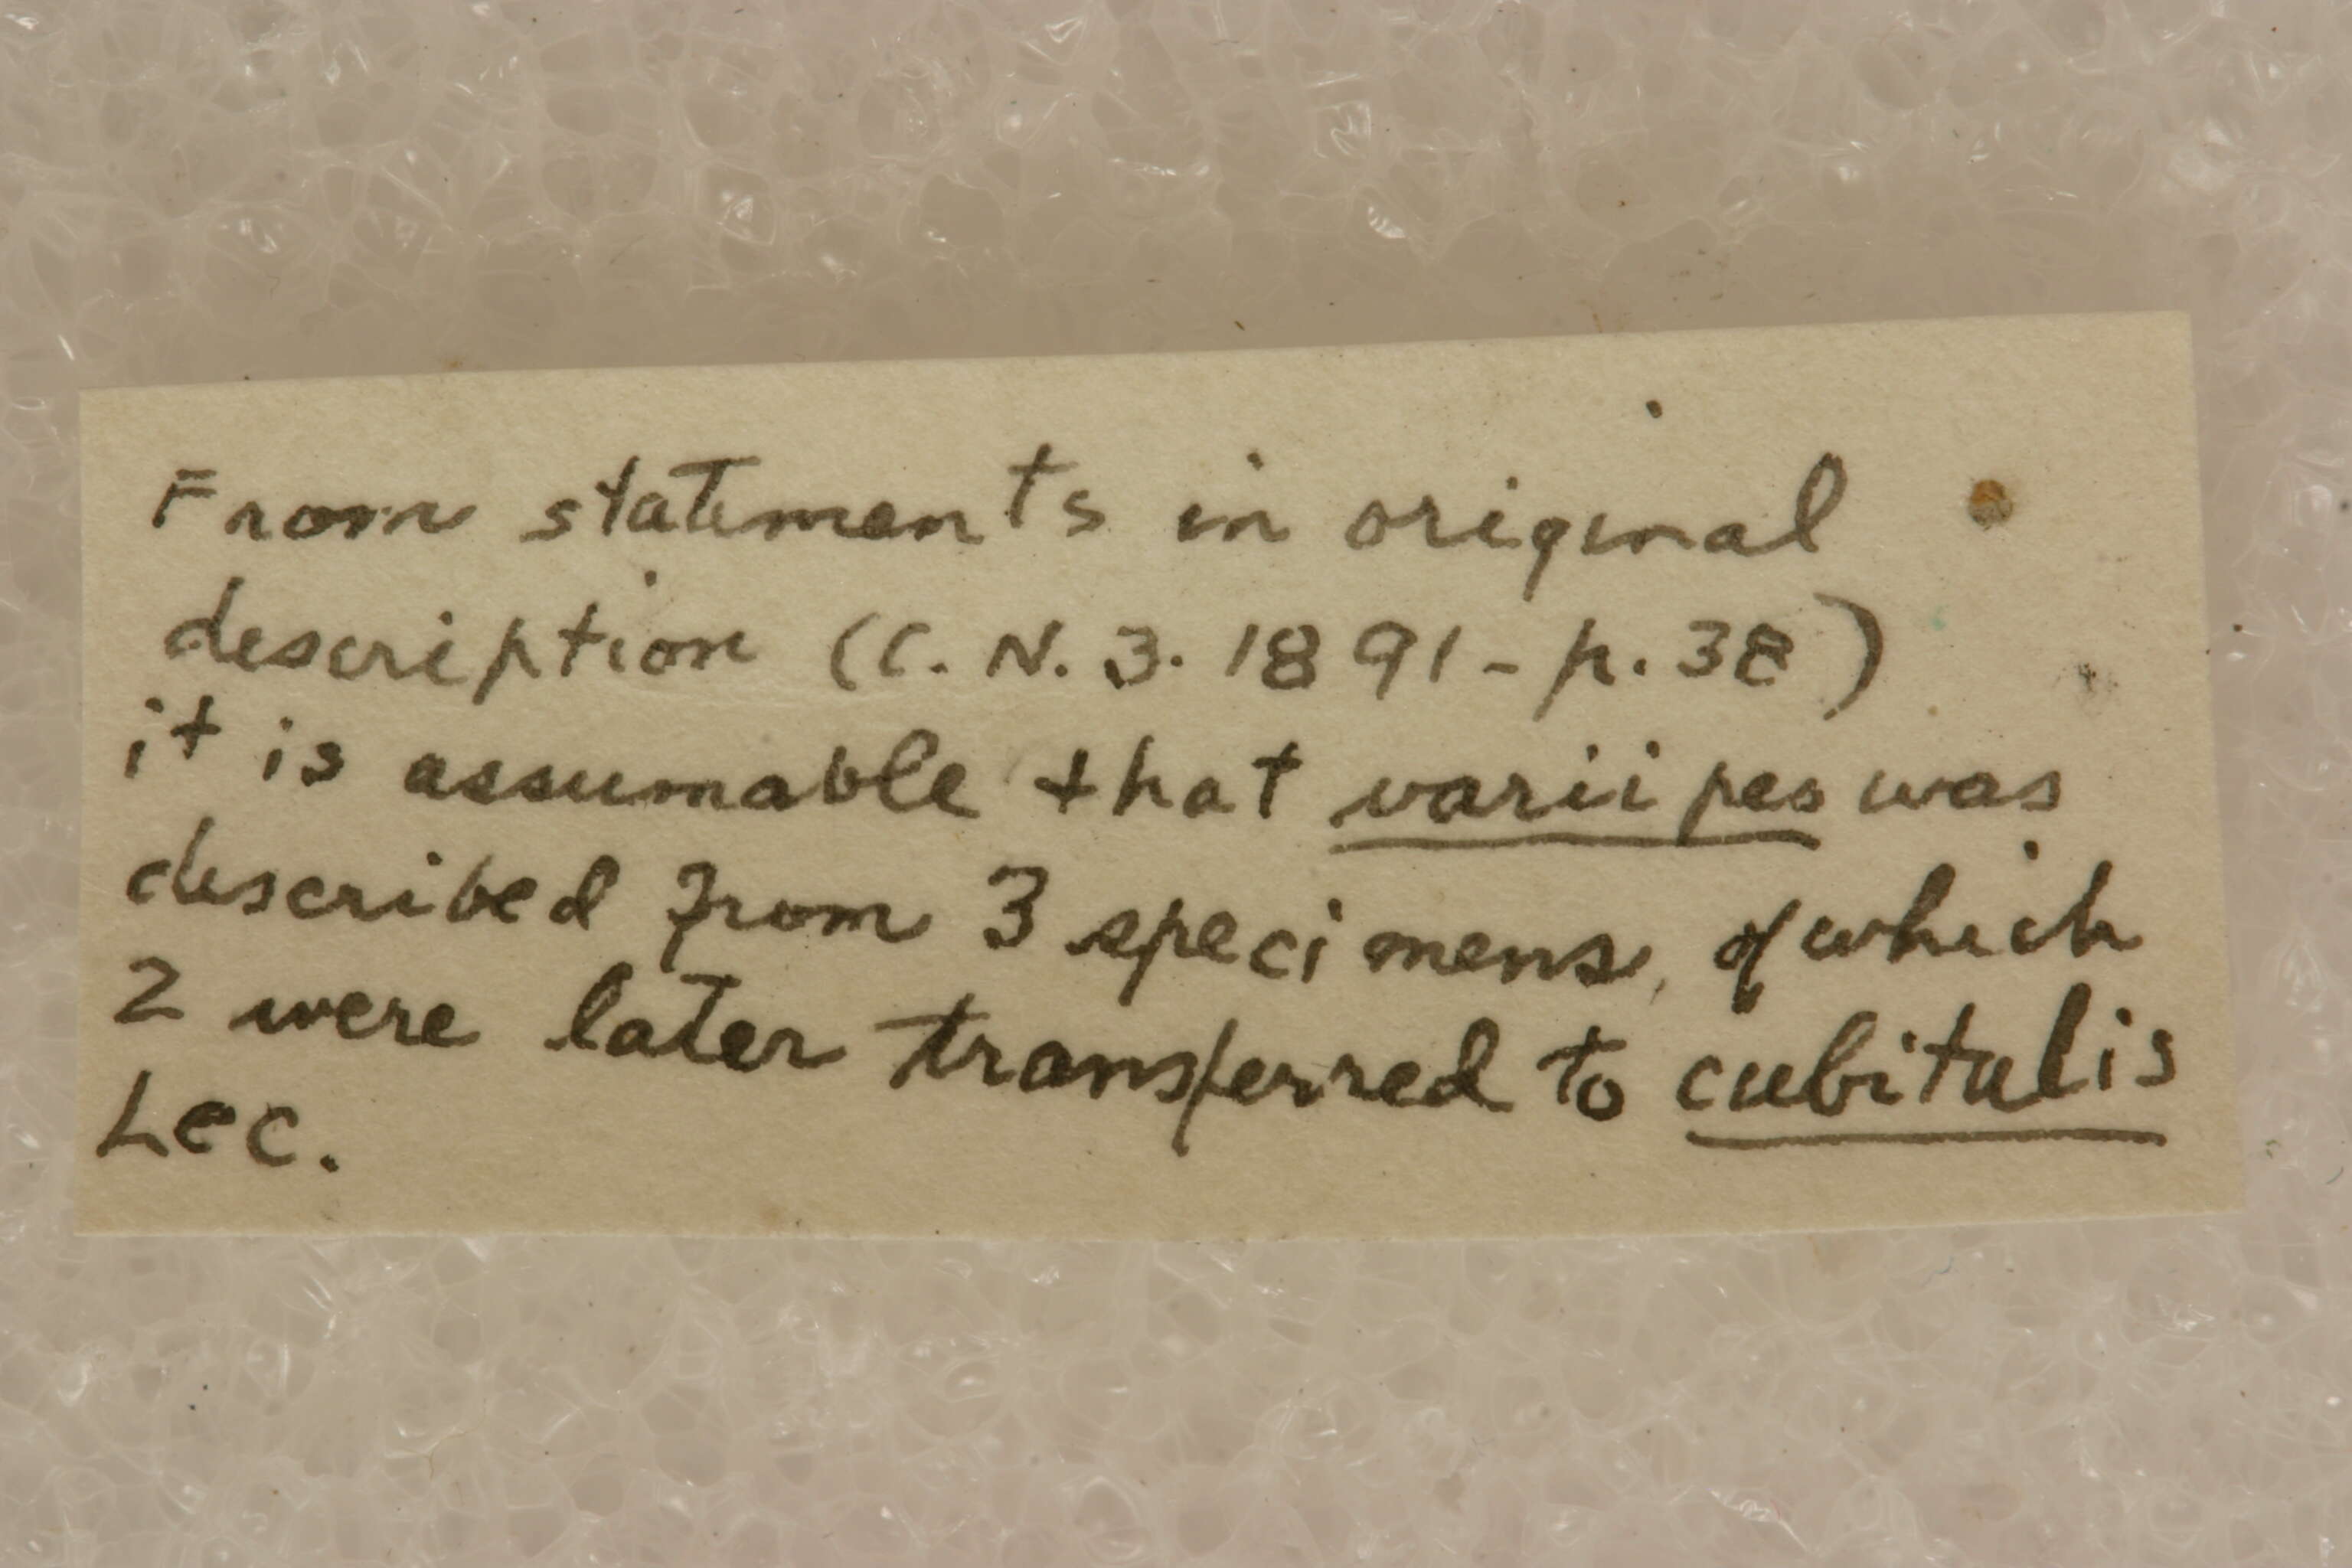 From statements in original
description (C. N. 3. 1891 - p. 38)
it is assumable that variipes was
described from 3 specimens, of which
2 were later transferred to cubitalis
Lec.